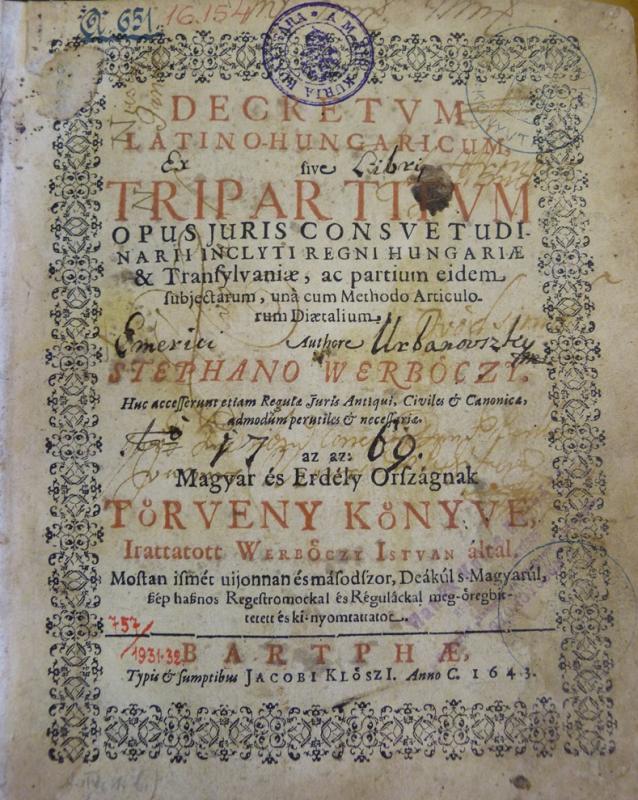 A. 651
16.154
DECRETVM
LATINO-HUNGARICUM,
Ex sive Libris
TRIPARTITVM
OPUS JURIS CONSVETUDI-
NARII INCLYTI REGNI HUNGARIÆ
& Tranſylvaniæ, ac partium eidem
ſubjectarum, unà cum Methodo Articulo-
rum Diætalium,
Emerici Authore Urbanovszky
STEPHANO WERBŐCZY.
Huc acceſſerunt etiam Regulæ Juris Antiqui, Civiles & Canonicæ,
admodùm perutiles & neceſſariæ.
17 az az: 69.
Magyar és Erdély Orſzágnak
TŐRVENY KŐNYVE,
Irattatott WERBŐCZY ISTVAN által.
Moſtan iſmét uijonnan és máſodſzor, Deákúl s-Magyarúl,
ſzép haſznos Regeſtromockal és Réguláckal meg-őregbit-
tetett és ki-nyomtattatot.
757/
1931-32
BARTPHÆ,
Typis & ſumptibus JACOBI KLŐSZI. Anno C. 1643.